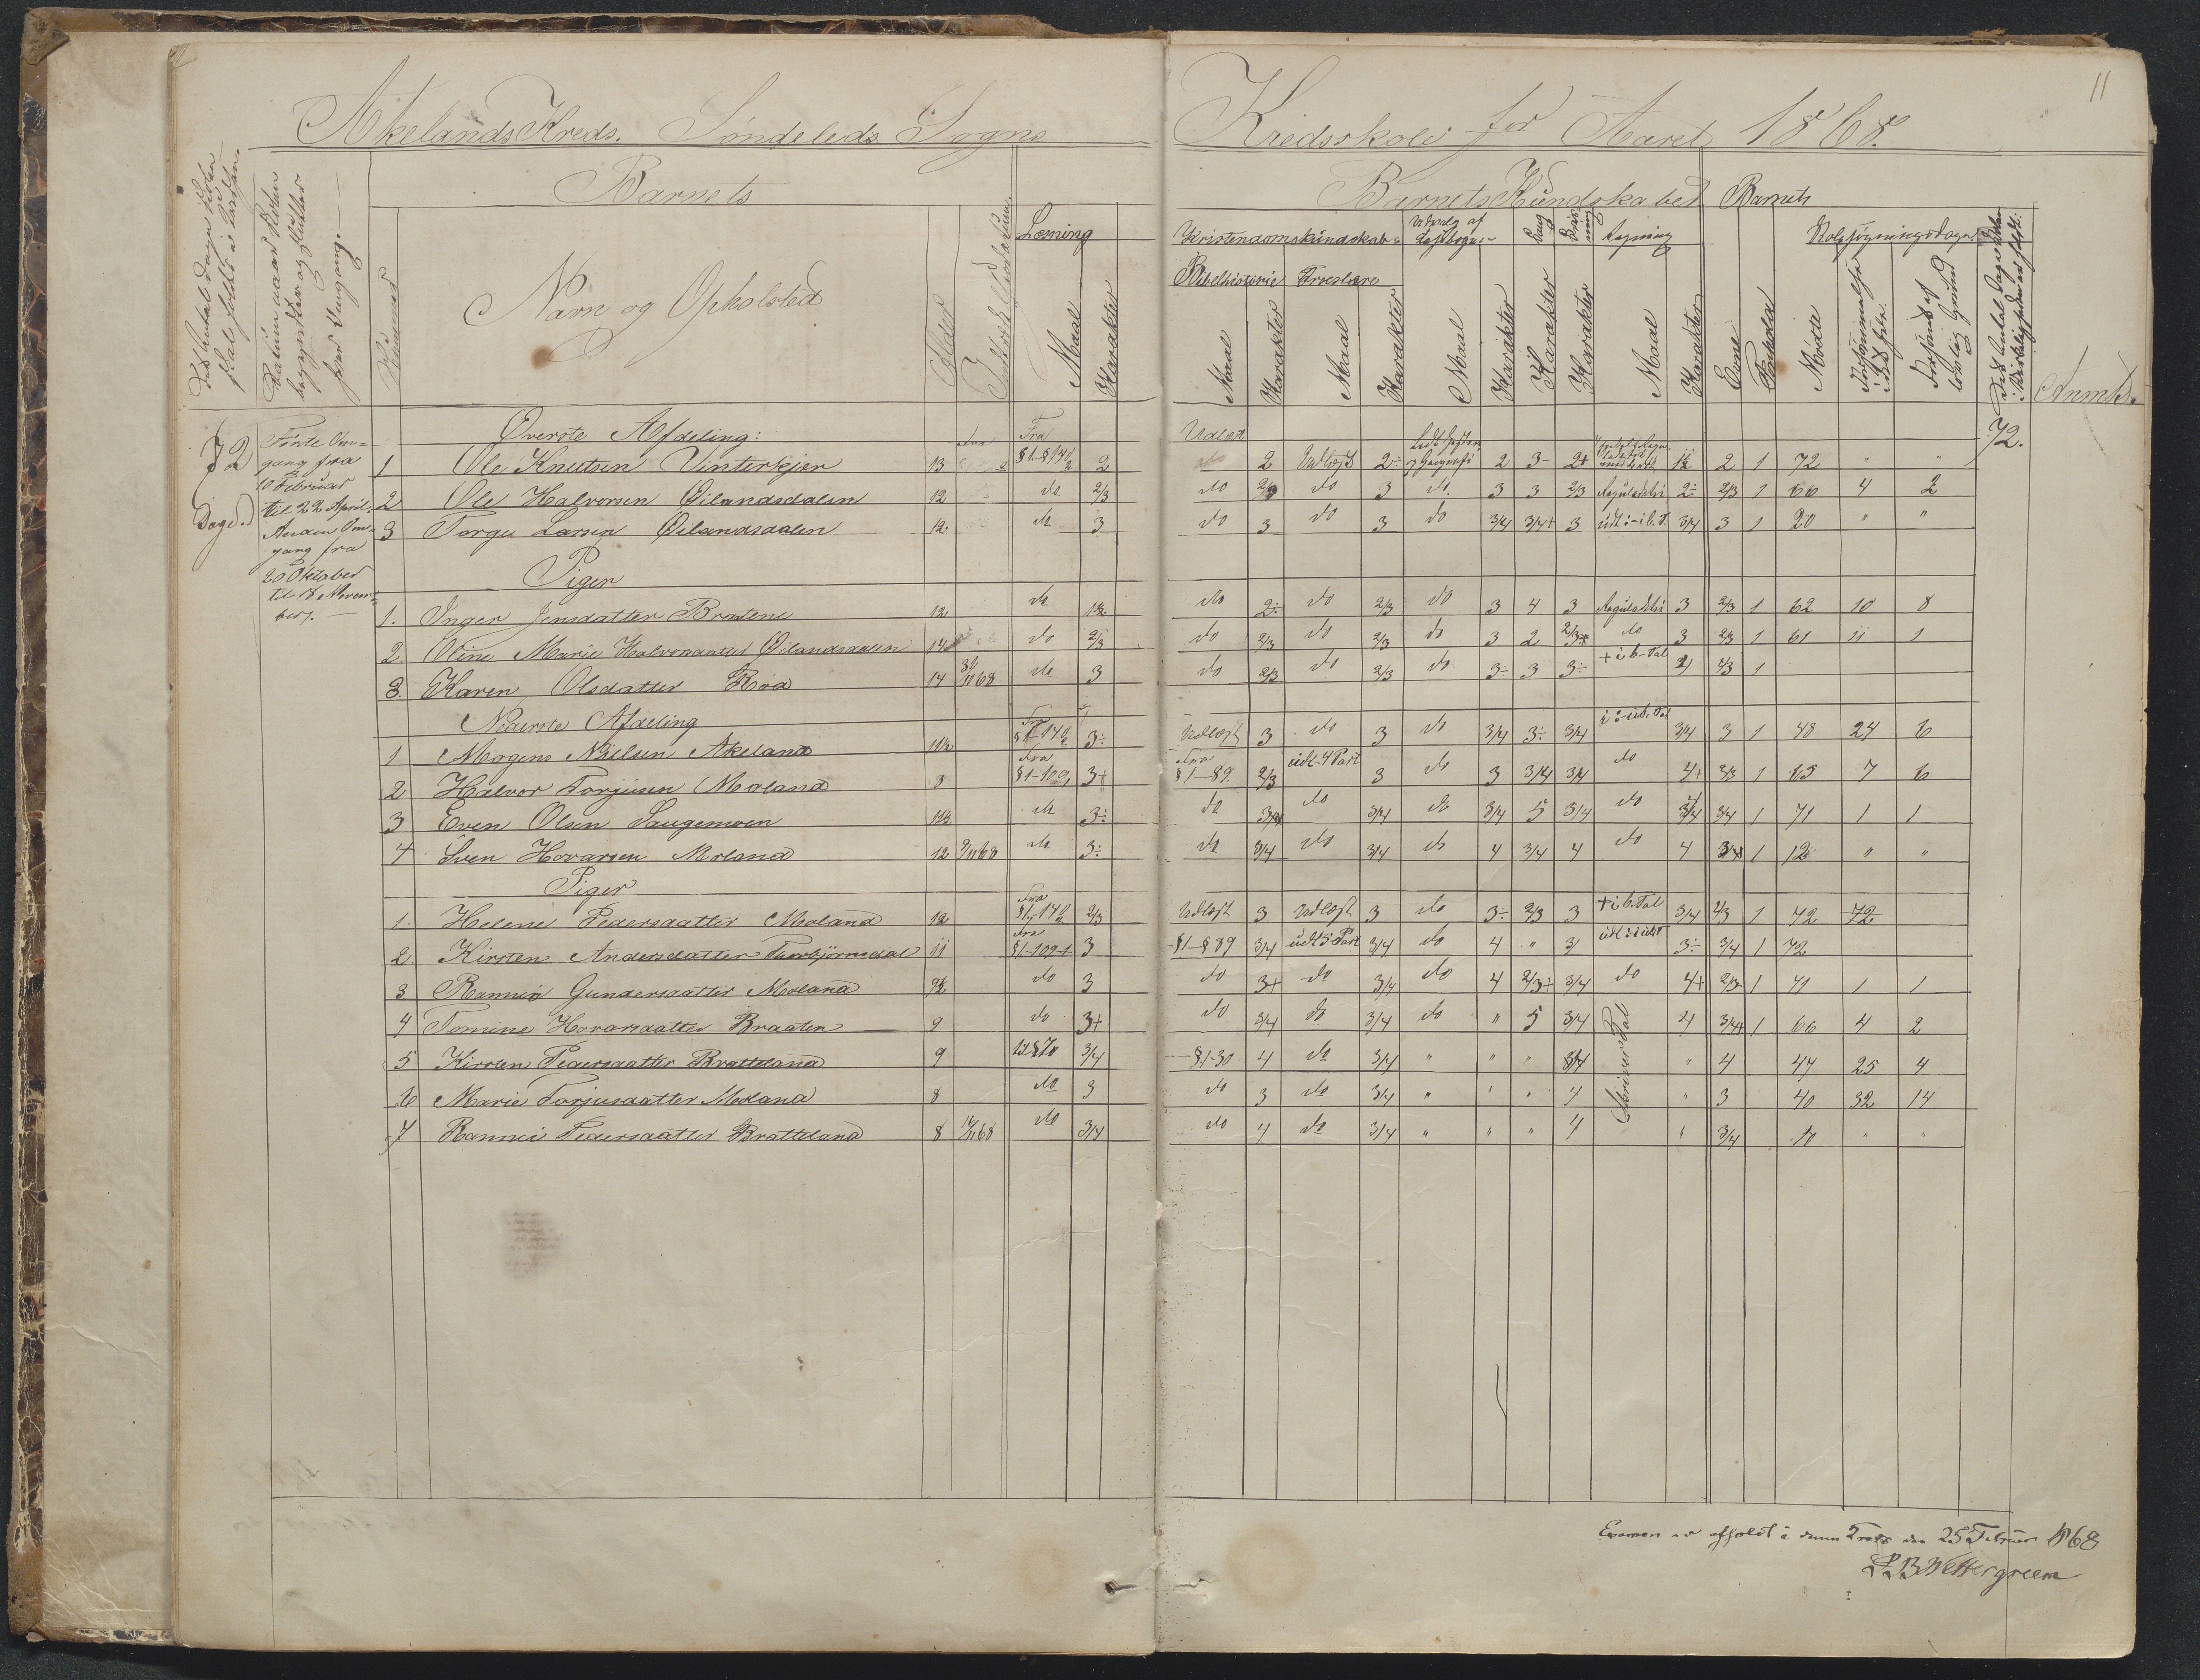 11
Akelands Kreds. Søndeleds Sogns
Kredsskole for Aaret 1868.
Barnets
Barnets Kundskaber
Barnets
Læsning
Kristendomskundskab
Udvalg af Læsebogen
Sang
Skrivning
Regning
Skolesøgningsdage
Bibelhistorie
Troeslære
Det Antal Dage Skolen skal holdes i Kredsen.
Datum naar Skolen begynder og slutter hver Omgang.
Nummer
Navn og Opholsted
Alder
Indtrædelsesdatum
Maal
Karakter
Maal
Karakter
Maal
Karakter
Maal
Karakter
Karakter
Karakter
Maal
Karakter
Evne
Forhold
Mødte
Forsømmelse i det hele.
Forsømt af lovlig Grund
Det Antal Dage Skolen i Virkelighed er holdt.
Anmk.
72 Dage.
Første Om=
gang fra
10 Februar
til 22 April.
Anden Om=
gang fra
20 Oktober
til 18 Novem=
ber.
72.
Øverste Afdeling:
1 Ole Knutsen Vinterkjær 13 Fra §1-§140 2 Udlæst 2 Udlæst 2÷ 2 3- 2+ 1½ 2 1 72 " "
2 Ole Halvorsen Øilandsdalen 12 do 2/3 do 2/3 do 3 do. 3 3 2/3 Reguladetri 2÷ 2/3 1 66 4 2
3 Torge Larsen Øilandsdalen 12 do 3 do 3 do 3 do 3/4 3/4+ 3 3/4 3 1 20 " "
Piger
1. Inger Jensdatter Bratene 12 do 1½ do 2÷ do 2/3 do 3 4 3 Reguladetri 3 2/3 1 62 10 8
2 Oline Marie Halvorsdatter Øilandsdalen 14 do 2/3 do 2/3 do 2/3 do 3 2 2/3+ do 3 2/3 1 61 11 1
3. Karen Olsdatter Røa 14 do 3 do 2/3 do 2/3 do 3÷ 3 3÷ + i b. Tal 4 2/3 1
Nederste Afdeling
1 Mogens Nilsen Akeland 11½ Fra §1-140 3÷ Udlæst 3 do 3 do 3/4 3÷ 3/4 3/4 3 1 48 24 6
2 Halvor Torjusen Moland 8 Fra §1-109 3+ Fra §1-89. 2/3 udt. 4 Part 3 do 3 3/4 3/4 do 4+ 2/3 1 65 7 6
3 Even Olsen Laugemoen 11½ do 3÷ do 3/4 do 3/4 do 3/4 5 3/4 do 3/4 3/4 1 71 1 1
4 Sven Hovarsen Moland 12 9/11 68 do 3÷ do 3/4 do 3/4 do 4 3/4 4 do 4 3/4 1 12 " "
Piger
1. Helene Pedersdatter Moland 12 Fra §1-140 2/3 Udlæst 3 Udlæst 3 do 3÷ 2/3 3 + i b. Tal 3/4 2/3 1 72
2 Kirsten Andersdatter Thorbjørnsdal 11 Fra §1-109+ 3 §1-§89 3/4 udt 5 Part 3/4 do 4 " 3 3÷ 3/4 1 72
3 Rannei Gundersdatter Moland 9½ do 3 do 3+ do 3/4 do 4 2/3+ 3/4 do 4+ 2/3 1 71 1 1
4 Tomine Hovarsdatter Braaten 9 do 3+ do 3/4 do 3/4 do " 5 3/4 Skriver Tal 4 3/4+ 1 66 4 2
5 Kirsten Pedersdatter Bratteland 9 til §70 3/4 §1-30 4 do 3/4 " " " 3/4 " 4 47 25 4
6 Marie Torjusdatter Moland 8 do 3 do 3 do 3/4 " " " 4 " 3 40 32 14
7 Rannei Pedersdatter Bratteland 8 do 3/4 do 4 do 3/4 " " " 4 " 3/4 10 " "
Examen er afholdt i denne Kreds den 25 Februar 1868
P B Wettergreen